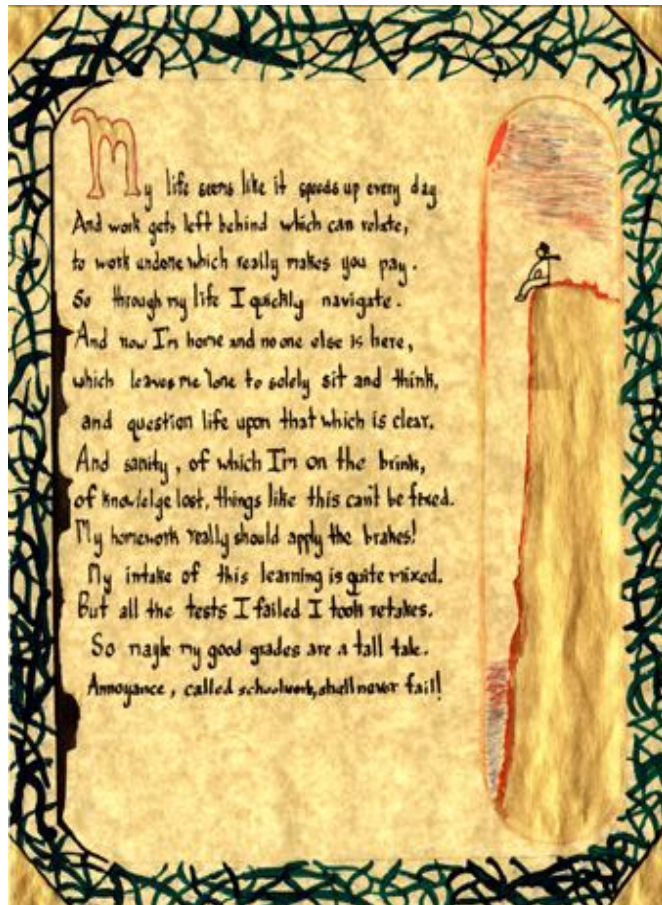 My life seems like it speeds up every day
And work gets left behind which can relate,
to work undone which really makes you pay.
So through my life I quickly navigate.
And now I'm home and no one else is here,
which leaves me 'lone to solely sit and think,
and question life upon that which is clear.
And sanity, of which I'm on the brink,
of knowlelge lost, things like this can't be fixed.
My homework really should apply the brakes!
My intake of this learning is quite mixed.
But all the tests I failed I took retakes.
So mayle my good grades are a tall tale.
Annoyance, called schoolwork, shall never fail!